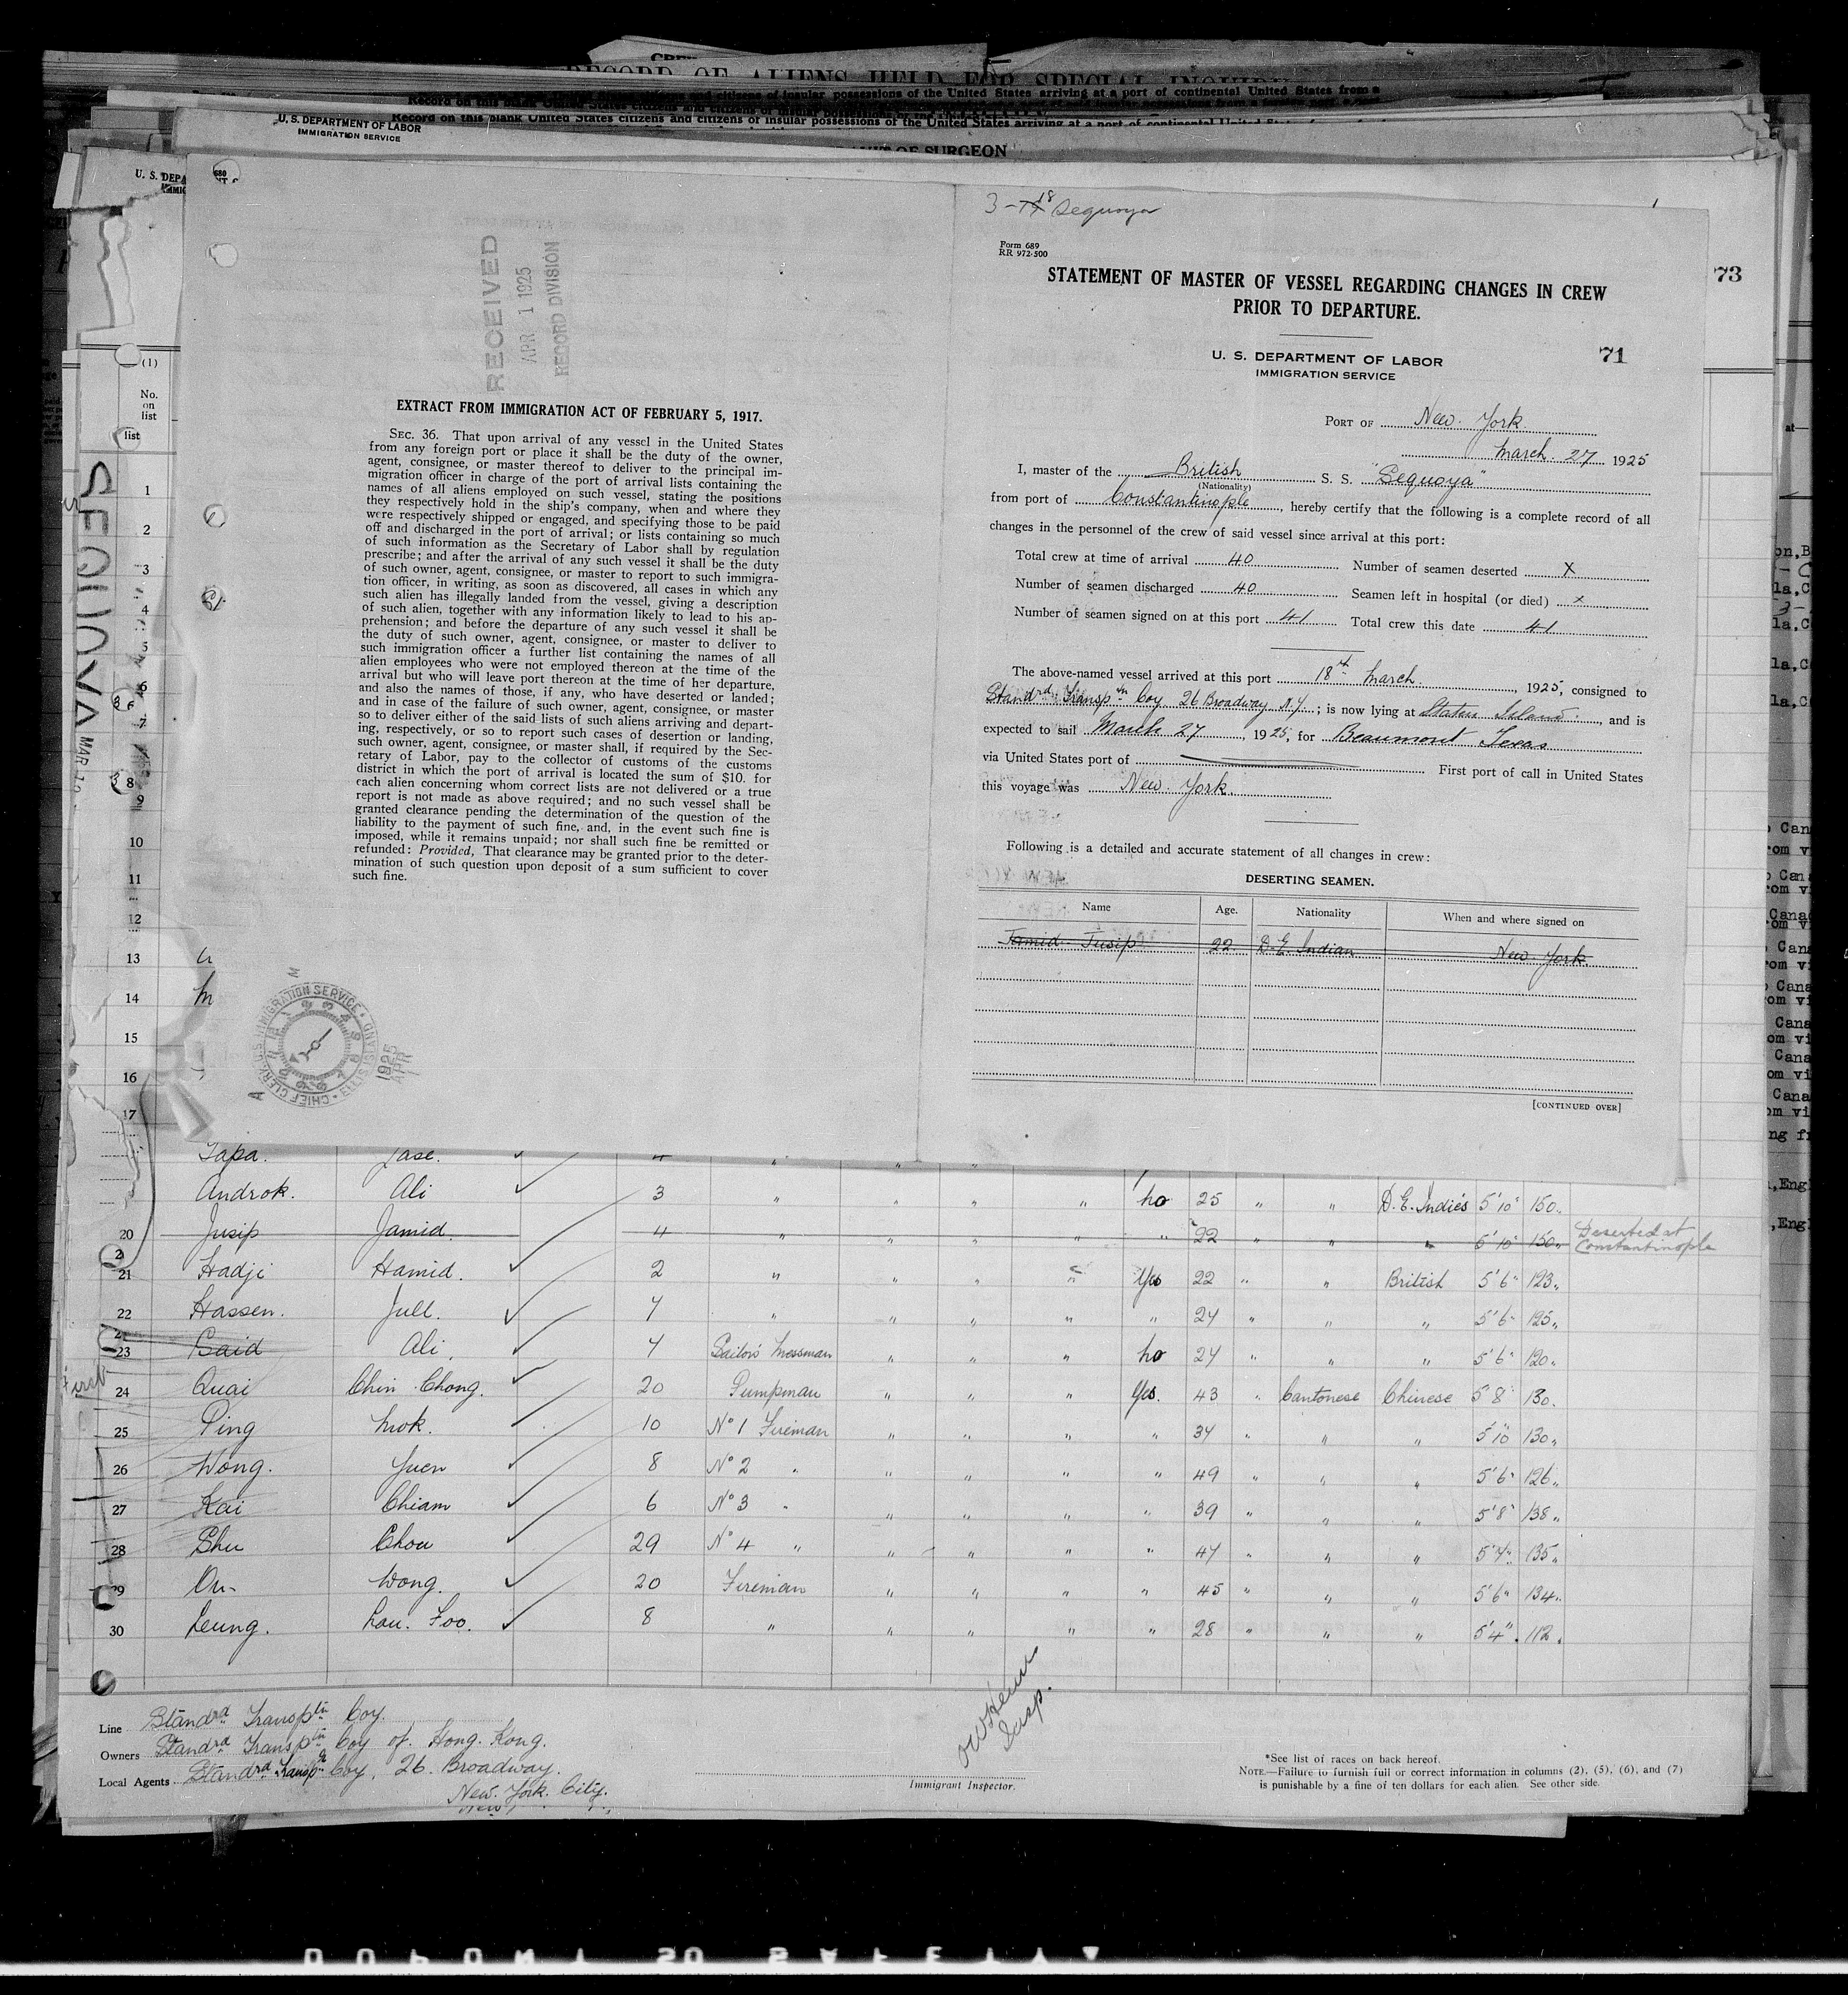 RECORD OF ALIENS HELD FOR SPECIAL INQUIRY
Record on this blank United States citizens and citizens of insular possessions of the United States arriving at a port of continental United
U. S. DEPARTMENT OF LABOR
IMMIGRATION SERVICE
OF SURGEON
U. S. DEPA
73
680
RECEIVED
APR 1 1925
RECORD DIVISION
EXTRACT FROM IMMIGRATION ACT OF FEBRUARY 5, 1917.
SEC. 36. That upon arrival of any vessel in the United States
from any foreign port or place it shall be the duty of the owner,
agent, consignee, or master thereof to deliver to the principal im-
migration officer in charge of the port of arrival lists containing the
names of all aliens employed on such vessel, stating the positions
they respectively hold in the ship's company, when and where they
were respectively shipped or engaged, and specifying those to be paid
off and discharged in the port of arrival; or lists containing so much
of such information as the Secretary of Labor shall by regulation
prescribe; and after the arrival of any such vessel it shall be the duty
of such owner, agent, consignee, or master to report to such immigra-
tion officer, in writing, as soon as discovered, all cases in which any
such alien has illegally landed from the vessel, giving a description
of such alien, together with any information likely to lead to his ap-
prehension; and before the departure of any such vessel it shall be
the duty of such owner, agent, consignee, or master to deliver to
such immigration officer a further list containing the names of all
alien employees who were not employed thereon at the time of the
arrival but who will leave port thereon at the time of her departure,
and also the names of those, if any, who have deserted or landed;
and in case of the failure of such owner, agent, consignee, or master
so to deliver either of the said lists of such aliens arriving and depart-
ing, respectively, or so to report such cases of desertion or landing,
such owner, agent, consignee, or master shall, if required by the Sec-
retary of Labor, pay to the collector of customs of the customs
district in which the port of arrival is located the sum of $10. for
each alien concerning whom correct lists are not delivered or a true
report is not made as above required; and no such vessel shall be
granted clearance pending the determination of the question of the
liability to the payment of such fine, and, in the event such fine is
imposed, while it remains unpaid; nor shall such fine be remitted or
refunded: Provided, That clearance may be granted prior to the deter-
mination of such question upon deposit of a sum sufficient to cover
such fine.
3-18 Sequoya
Form 689
RR 972-500
STATEMENT OF MASTER OF VESSEL REGARDING CHANGES IN CREW
PRIOR TO DEPARTURE.
U. S. DEPARTMENT OF LABOR
IMMIGRATION SERVICE
71
PORT OF New York
March 27 1925
I, master of the British S. S. "Sequoya"
(Nationality)
from port of Constantinople, hereby certify that the following is a complete record of all
changes in the personnel of the crew of said vessel since arrival at this port:
Total crew at time of arrival 40 Number of seamen deserted X
Number of seamen discharged 40 Seamen left in hospital (or died) x
Number of seamen signed on at this port 41 Total crew this date 41
The above-named vessel arrived at this port 18th March, 1925, consigned to
Standrd Transptn Coy 26 Broadway N.Y.; is now lying at Staten Island, and is
expected to sail March 27, 1925, for Beaumont Texas
via United States port of First port of call in United States
this voyage was New York.
Following is a detailed and accurate statement of all changes in crew:
DESERTING SEAMEN.
Name Age. Nationality When and where signed on
Jamid Jusip 22 D.E. Indian New York
[CONTINUED OVER]
(1)
No.
on
list
list
SEQUOYA
MAR
1
2
3
4
5
6
7
8
9
10
11
12
13
14
15
16
17
CHIEF CLERK U.S. IMMIGRATION SERVICE
1925
APR
Tapa. Jase. 4 " " "
Androk. Ali 3 " " " " no 25 " " D.E. Indies 5'10" 150
20 Jusip Jamid. 4 " " " " " 22 " " " 5'10" 150 Deserted at Constantinople
21 Hadji Hamid. 2 " " " " Yes 22 " " British 5'6" 123
22 Hassen. Jull. 7 " " " " " 24 " " " 5'6" 125
23 Said Ali. 7 Sailors Messman " " " no 24 " " " 5'6" 120
24 Quai Chin Chong. 20 Pumpman " " " Yes. 43 " Cantonese Chinese 5'8" 130.
25 Ping Mok. 10 No 1 Fireman " " " " 34 " " " 5'10 130
26 Wong. Yuen 8 No 2 " " " " " 49 " " " 5'6" 126
27 Kai Chiam 6 No 3 " " " " " 39 " " " 5'8" 138
28 Shu Chou 29 No 4 " " " " " 47 " " " 5'7" 135
29 On- Wong. 20 Fireman " " " " 45 " " " 5'6" 134
30 Leung. Lau. Foo. 8 " " " " " 28 " " " 5'4" 112
Line Standrd Transptn Coy.
Owners Standrd Transptn Coy of Hong. Kong.
Local Agents Standrd Transptn Coy, 26. Broadway.
New York City.
Insp.
Immigrant Inspector.
*See list of races on back hereof.
NOTE.—Failure to furnish full or correct information in columns (2), (5), (6), and (7)
is punishable by a fine of ten dollars for each alien. See other side.